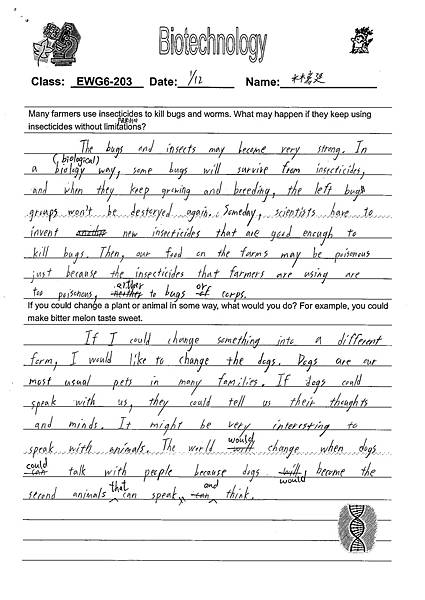 Biotechnology
Class: EWG6-203 Date: 1/12 Name:
Many farmers use insecticides to kill bugs and worms. What may happen if they keep using
insecticides without limitations?
The bugs and insects may become very strong. In
(biological)
a biology way, some bugs will survive from insecticides,
and when they keep growing and breeding, the left bugs
groups won't be destoryed again. Someday, scientists have to
invent new insecticides that are good enough to
kill bugs. Then, our food on the farms may be poisonous
just because the insecticides that farmers are using are
or
too poisonous, neither to bugs or corps.
If you could change a plant or animal in some way, what would you do? For example, you could
make bitter melon taste sweet.
If I could change something into a different
form, I would like to change the dogs. Dogs are our
most usual pets in many families. If dogs could
speak with us, they could tell us their thoughts
and minds. It might be very interesting to
would
speak with animals. The world will change when dogs
could
can talk with people because dogs will become the
would
that and
second animals can speak, can think.